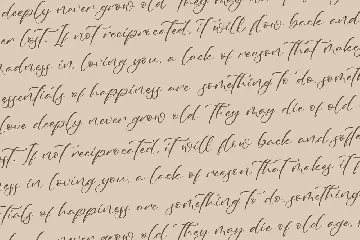 deeply never grow old they may die of old
er lost. If not reciprocated, it will flow back and
madness in loving you, a lack of reason that makes
essentials of happiness are something to do, someth
love deeply never grow old they may die of old
st. If not reciprocated, it will flow back and softe
ess in loving you, a lack of reason that makes it f
tials of happiness are something to do, something
deeply never grow old they may die of old age,
lost. If not reciprocated, it will flow back and